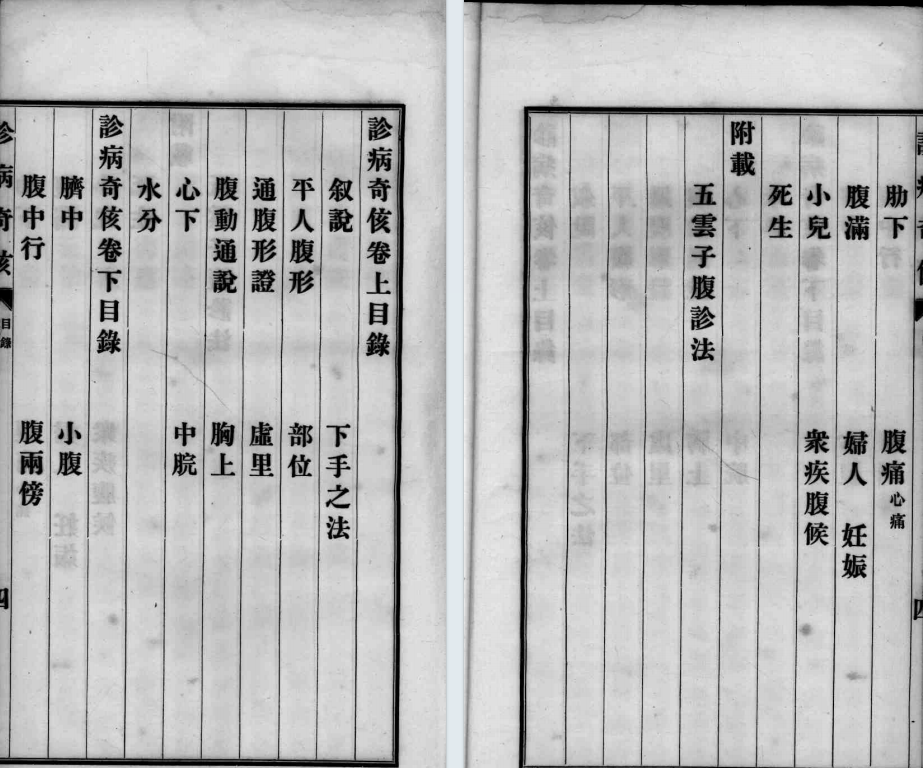 診病奇侅卷上目錄
叙說 下手之法
平人腹形 部位
通腹形證 虛里
腹動通說 胸上
心下 中脘
水分
診病奇侅卷下目錄
臍中 小腹
腹中行 腹兩傍
診病奇侅 目錄 四
肋下 腹痛心痛
腹滿 婦人 妊娠
小兒 衆疾腹候
死生
附載
五雲子腹診法